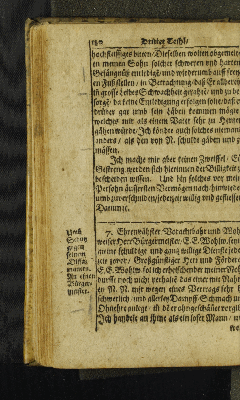 180 Dritter Theil/
hochfleissiges bitten/ Dieselben wolten
meinen Sohn solcher schweren und harten
Gefängniß entledigt/ und wiederumb auff freyen
Fußstellen/ in Betrachtung/ daß Er allbereit
in grosse Leibes Schwachheit gerahten/ und zu be-
sorgen/ da keine Entledigung erfolgen solte/ daß er
drüber gar umb sein Leben kommen möge/
welches mir als einem Vater sehr zu Hertzen
gehen würde/ Ich könde auch solches niemand
anders/ als den von N. schuld geben und
mässen.
Ich mache mir aber keinen Zweiffel/ E.
Gestreng. werden sich hierinnen der Billigkeit
bescheiden wissen. Und bin solches vor mein
Persohn äussersten Vermögen nach/ hinwieder
umb zuverschulden/ jederzeit willig und geflissen
Datum/ etc.
7. Ehrenvhester Vorachtbahr und Wohl-
weiser Herr Bürgermeister/ E. E. Wohlw. seyn
meine schuldige und gantz willige Dienste jeder-
zeit zuvor/ Großgünstiger Herr und Förderer
E. E. Wohlw. sol ich erheischender meiner Noht-
durfft nach nicht verhalten/ daß einer mit Nahmen
N. N. mir wegen eines Vertrags sehr
schwerlich/ und allerley Dampff/ Schmach und
Ich handele an ihme als ein loser Mann/
Umb
Schutz
wegen
seinen
An einen
Bürger-
meister.